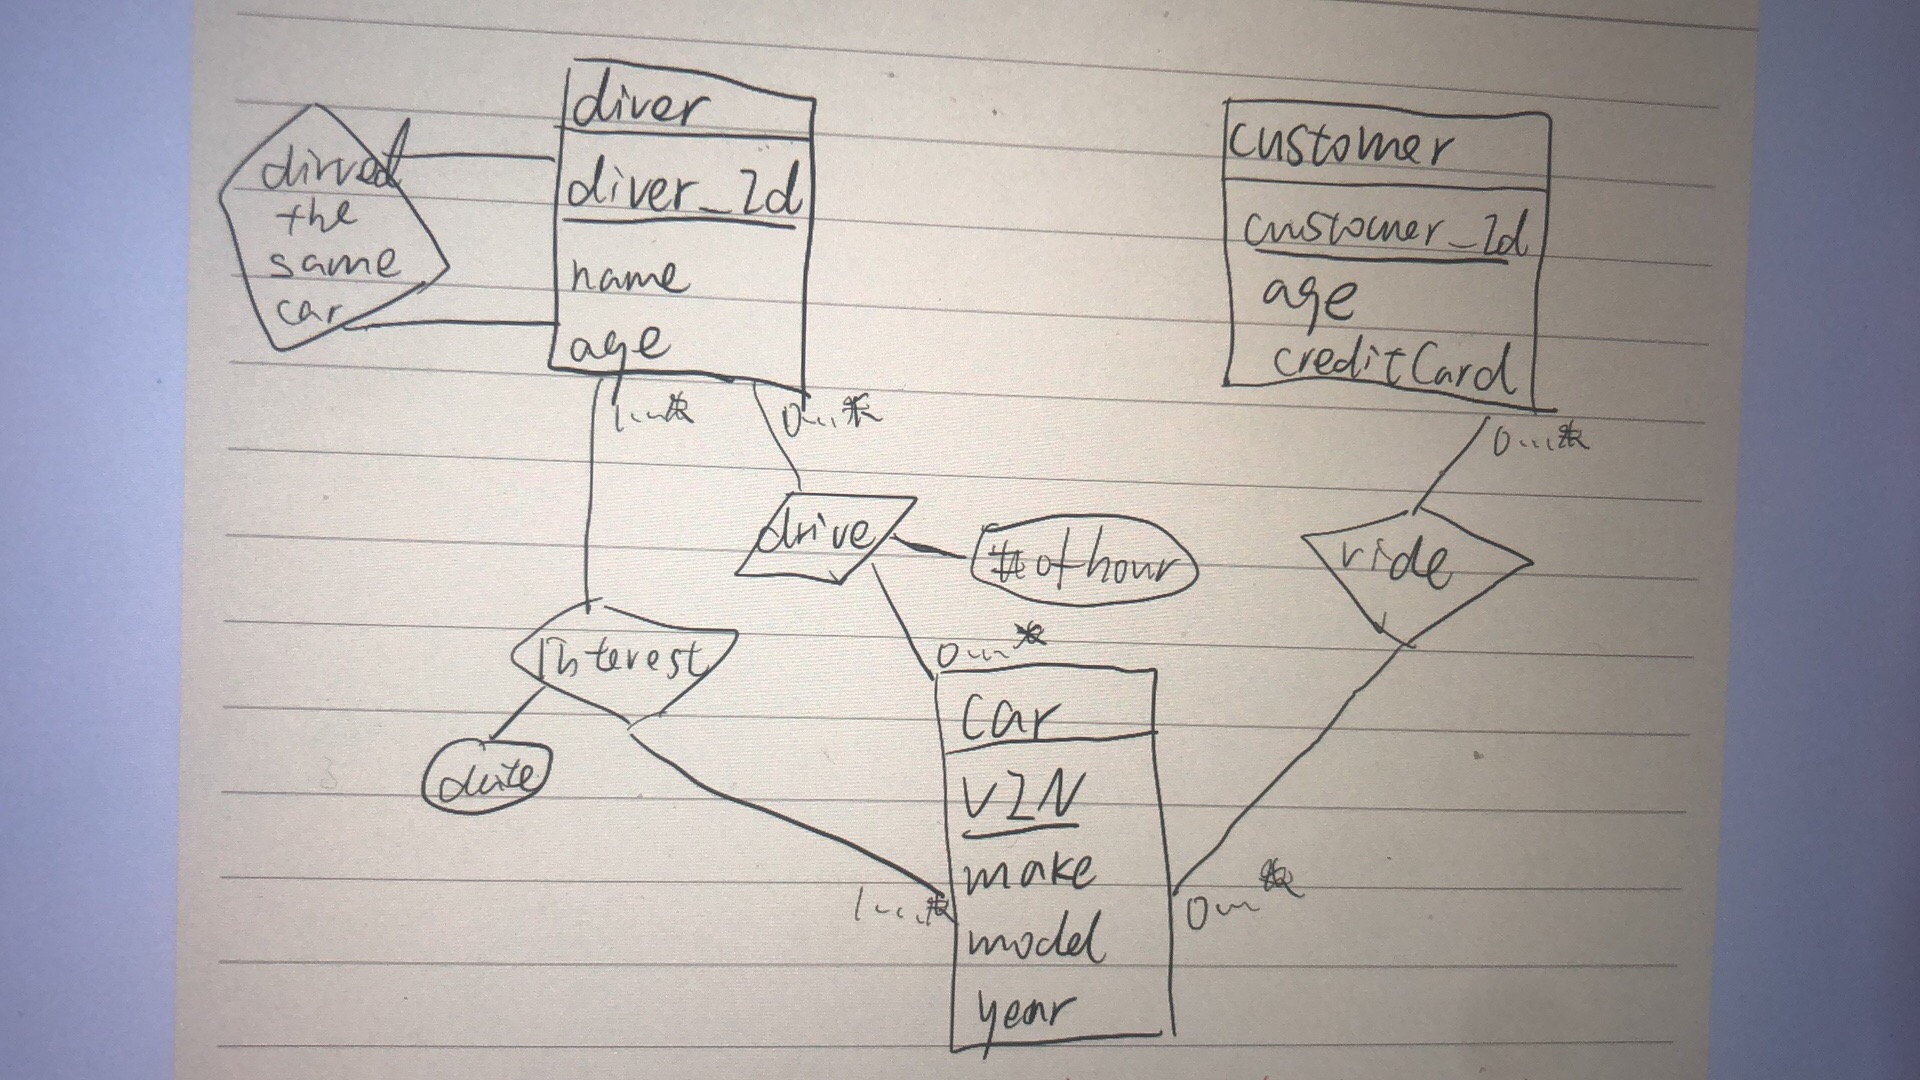 diver
diver_Id
name
age
dirved
the
same
car
customer
customer_Id
age
creditCard
1...*
0...*
0...*
drive
# of hour
ride
Interest
date
0...*
car
VIN
make
model
year
1...*
0...*